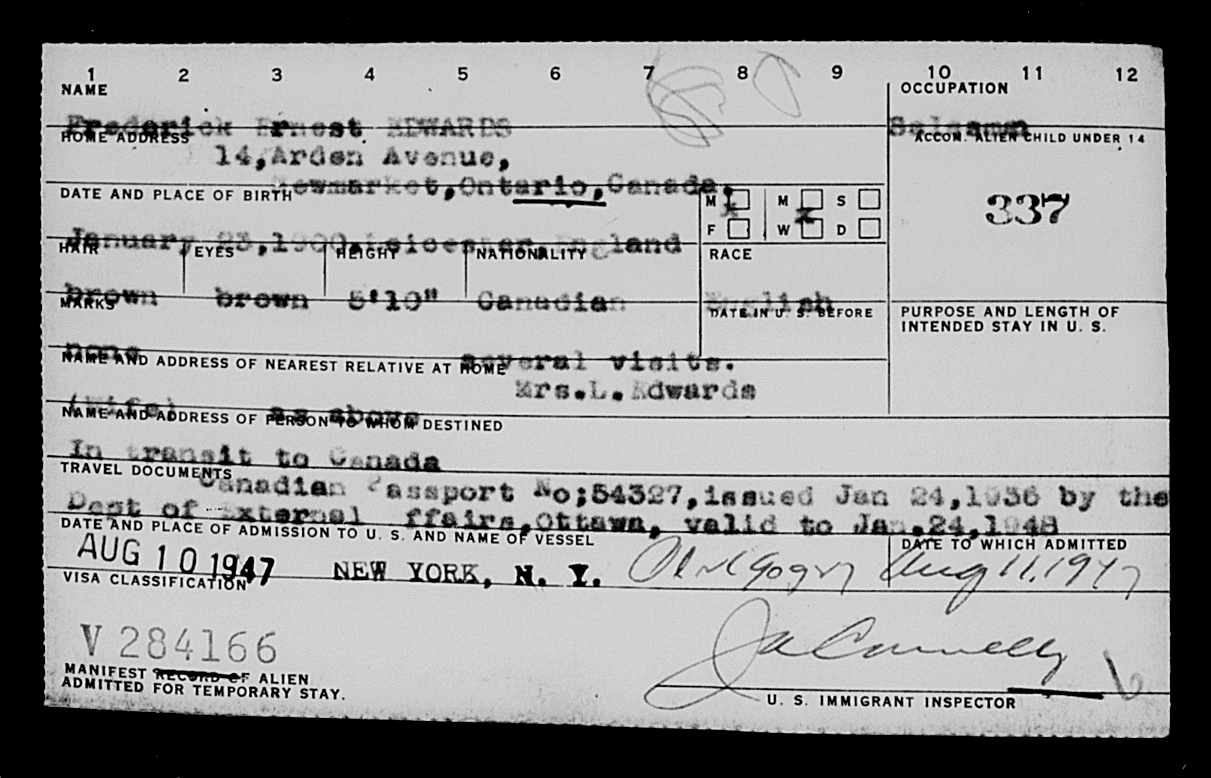 1 2 3 4 5 6 7 8 9 10 11 12
NAME OCCUPATION
Frederick Ernest EDWARDS Salesman
HOME ADDRESS ACCOM. ALIEN CHILD UNDER 14
14,Arden Avenue,
Newmarket,Ontario,Canada.
DATE AND PLACE OF BIRTH M x M S
337
F W x D
January 23,1900,Leicester,England
HAIR EYES HEIGHT NATIONALITY RACE
brown brown 5'10" Canadian English
MARKS DATE IN U. S. BEFORE PURPOSE AND LENGTH OF
INTENDED STAY IN U. S.
none several visits.
NAME AND ADDRESS OF NEAREST RELATIVE AT HOME
Mrs.L.Edwards
(Wife) as above
NAME AND ADDRESS OF PERSON TO WHOM DESTINED
In transit to Canada
TRAVEL DOCUMENTS
Canadian Passport No;54327,issued Jan 24,1936 by the
Dept of External ffairs,Ottawa, valid to Jan.24,1948
DATE AND PLACE OF ADMISSION TO U. S. AND NAME OF VESSEL DATE TO WHICH ADMITTED
AUG 10 1947 NEW YORK, N. Y. Aug 11, 1947
VISA CLASSIFICATION
V 284166
MANIFEST RECORD OF ALIEN
ADMITTED FOR TEMPORARY STAY.
U. S. IMMIGRANT INSPECTOR